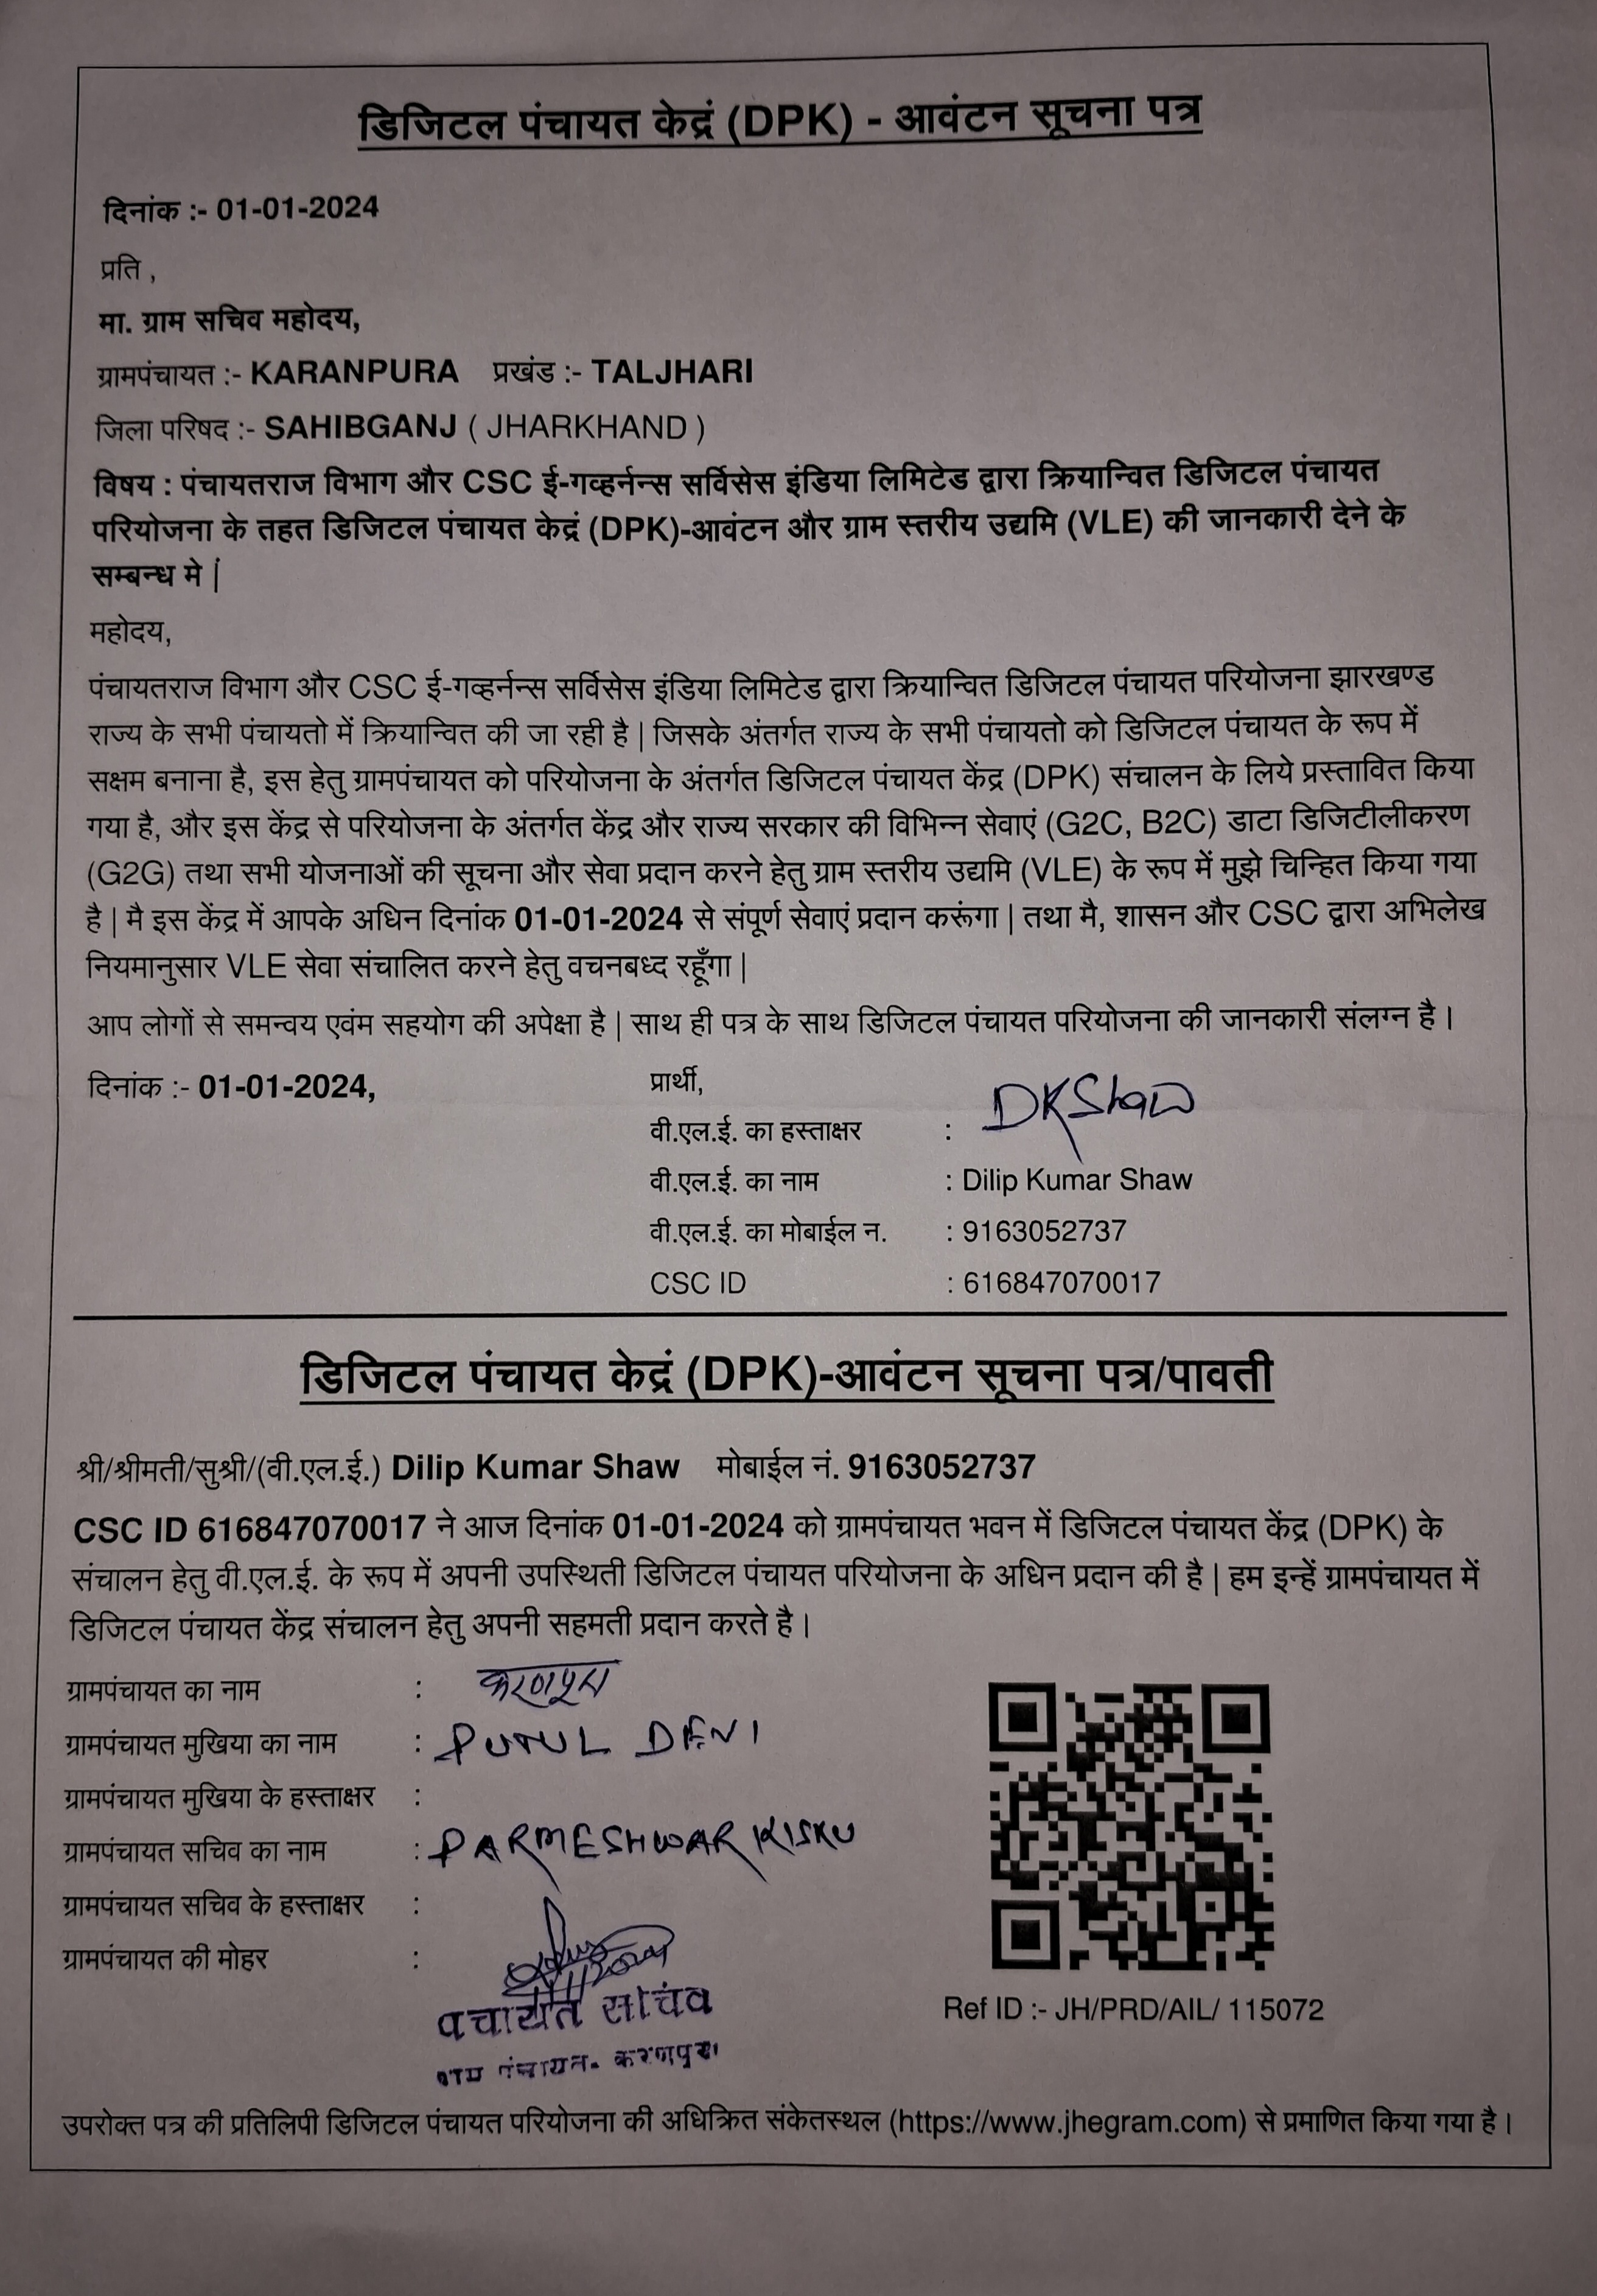 डिजिटल पंचायत केद्रं (DPK) - आवंटन सूचना पत्र
दिनांक :- 01-01-2024
प्रति ,
मा. ग्राम सचिव महोदय,
ग्रामपंचायत :- KARANPURA प्रखंड :- TALJHARI
जिला परिषद :- SAHIBGANJ ( JHARKHAND )
विषय : पंचायतराज विभाग और CSC ई-गव्हर्नन्स सर्विसेस इंडिया लिमिटेड द्वारा क्रियान्वित डिजिटल पंचायत
परियोजना के तहत डिजिटल पंचायत केद्रं (DPK)-आवंटन और ग्राम स्तरीय उद्यमि (VLE) की जानकारी देने के
सम्बन्ध मे |
महोदय,
पंचायतराज विभाग और CSC ई-गव्हर्नन्स सर्विसेस इंडिया लिमिटेड द्वारा क्रियान्वित डिजिटल पंचायत परियोजना झारखण्ड
राज्य के सभी पंचायतो में क्रियान्वित की जा रही है | जिसके अंतर्गत राज्य के सभी पंचायतो को डिजिटल पंचायत के रूप में
सक्षम बनाना है, इस हेतु ग्रामपंचायत को परियोजना के अंतर्गत डिजिटल पंचायत केंद्र (DPK) संचालन के लिये प्रस्तावित किया
गया है, और इस केंद्र से परियोजना के अंतर्गत केंद्र और राज्य सरकार की विभिन्न सेवाएं (G2C, B2C) डाटा डिजिटीलीकरण
(G2G) तथा सभी योजनाओं की सूचना और सेवा प्रदान करने हेतु ग्राम स्तरीय उद्यमि (VLE) के रूप में मुझे चिन्हित किया गया
है | मै इस केंद्र में आपके अधिन दिनांक 01-01-2024 से संपूर्ण सेवाएं प्रदान करूंगा | तथा मै, शासन और CSC द्वारा अभिलेख
नियमानुसार VLE सेवा संचालित करने हेतु वचनबध्द रहूँगा |
आप लोगों से समन्वय एवंम सहयोग की अपेक्षा है | साथ ही पत्र के साथ डिजिटल पंचायत परियोजना की जानकारी संलग्न है ।
दिनांक :- 01-01-2024, प्रार्थी,
वी.एल.ई. का हस्ताक्षर : DKShaw
वी.एल.ई. का नाम : Dilip Kumar Shaw
वी.एल.ई. का मोबाईल न. : 9163052737
CSC ID : 616847070017
डिजिटल पंचायत केद्रं (DPK)-आवंटन सूचना पत्र/पावती
श्री/श्रीमती/सुश्री/(वी.एल.ई.) Dilip Kumar Shaw मोबाईल नं. 9163052737
CSC ID 616847070017 ने आज दिनांक 01-01-2024 को ग्रामपंचायत भवन में डिजिटल पंचायत केंद्र (DPK) के
संचालन हेतु वी.एल.ई. के रूप में अपनी उपस्थिती डिजिटल पंचायत परियोजना के अधिन प्रदान की है | हम इन्हें ग्रामपंचायत में
डिजिटल पंचायत केंद्र संचालन हेतु अपनी सहमती प्रदान करते है ।
ग्रामपंचायत का नाम : करणपुरा
ग्रामपंचायत मुखिया का नाम : PUTUL DEVI
ग्रामपंचायत मुखिया के हस्ताक्षर :
ग्रामपंचायत सचिव का नाम : PARMESHWAR KISKU
ग्रामपंचायत सचिव के हस्ताक्षर :
ग्रामपंचायत की मोहर :
पंचायत सचिव
ग्राम पंचायत- करणपुरा
Ref ID :- JH/PRD/AIL/ 115072
उपरोक्त पत्र की प्रतिलिपी डिजिटल पंचायत परियोजना की अधिक्रित संकेतस्थल (https://www.jhegram.com) से प्रमाणित किया गया है ।